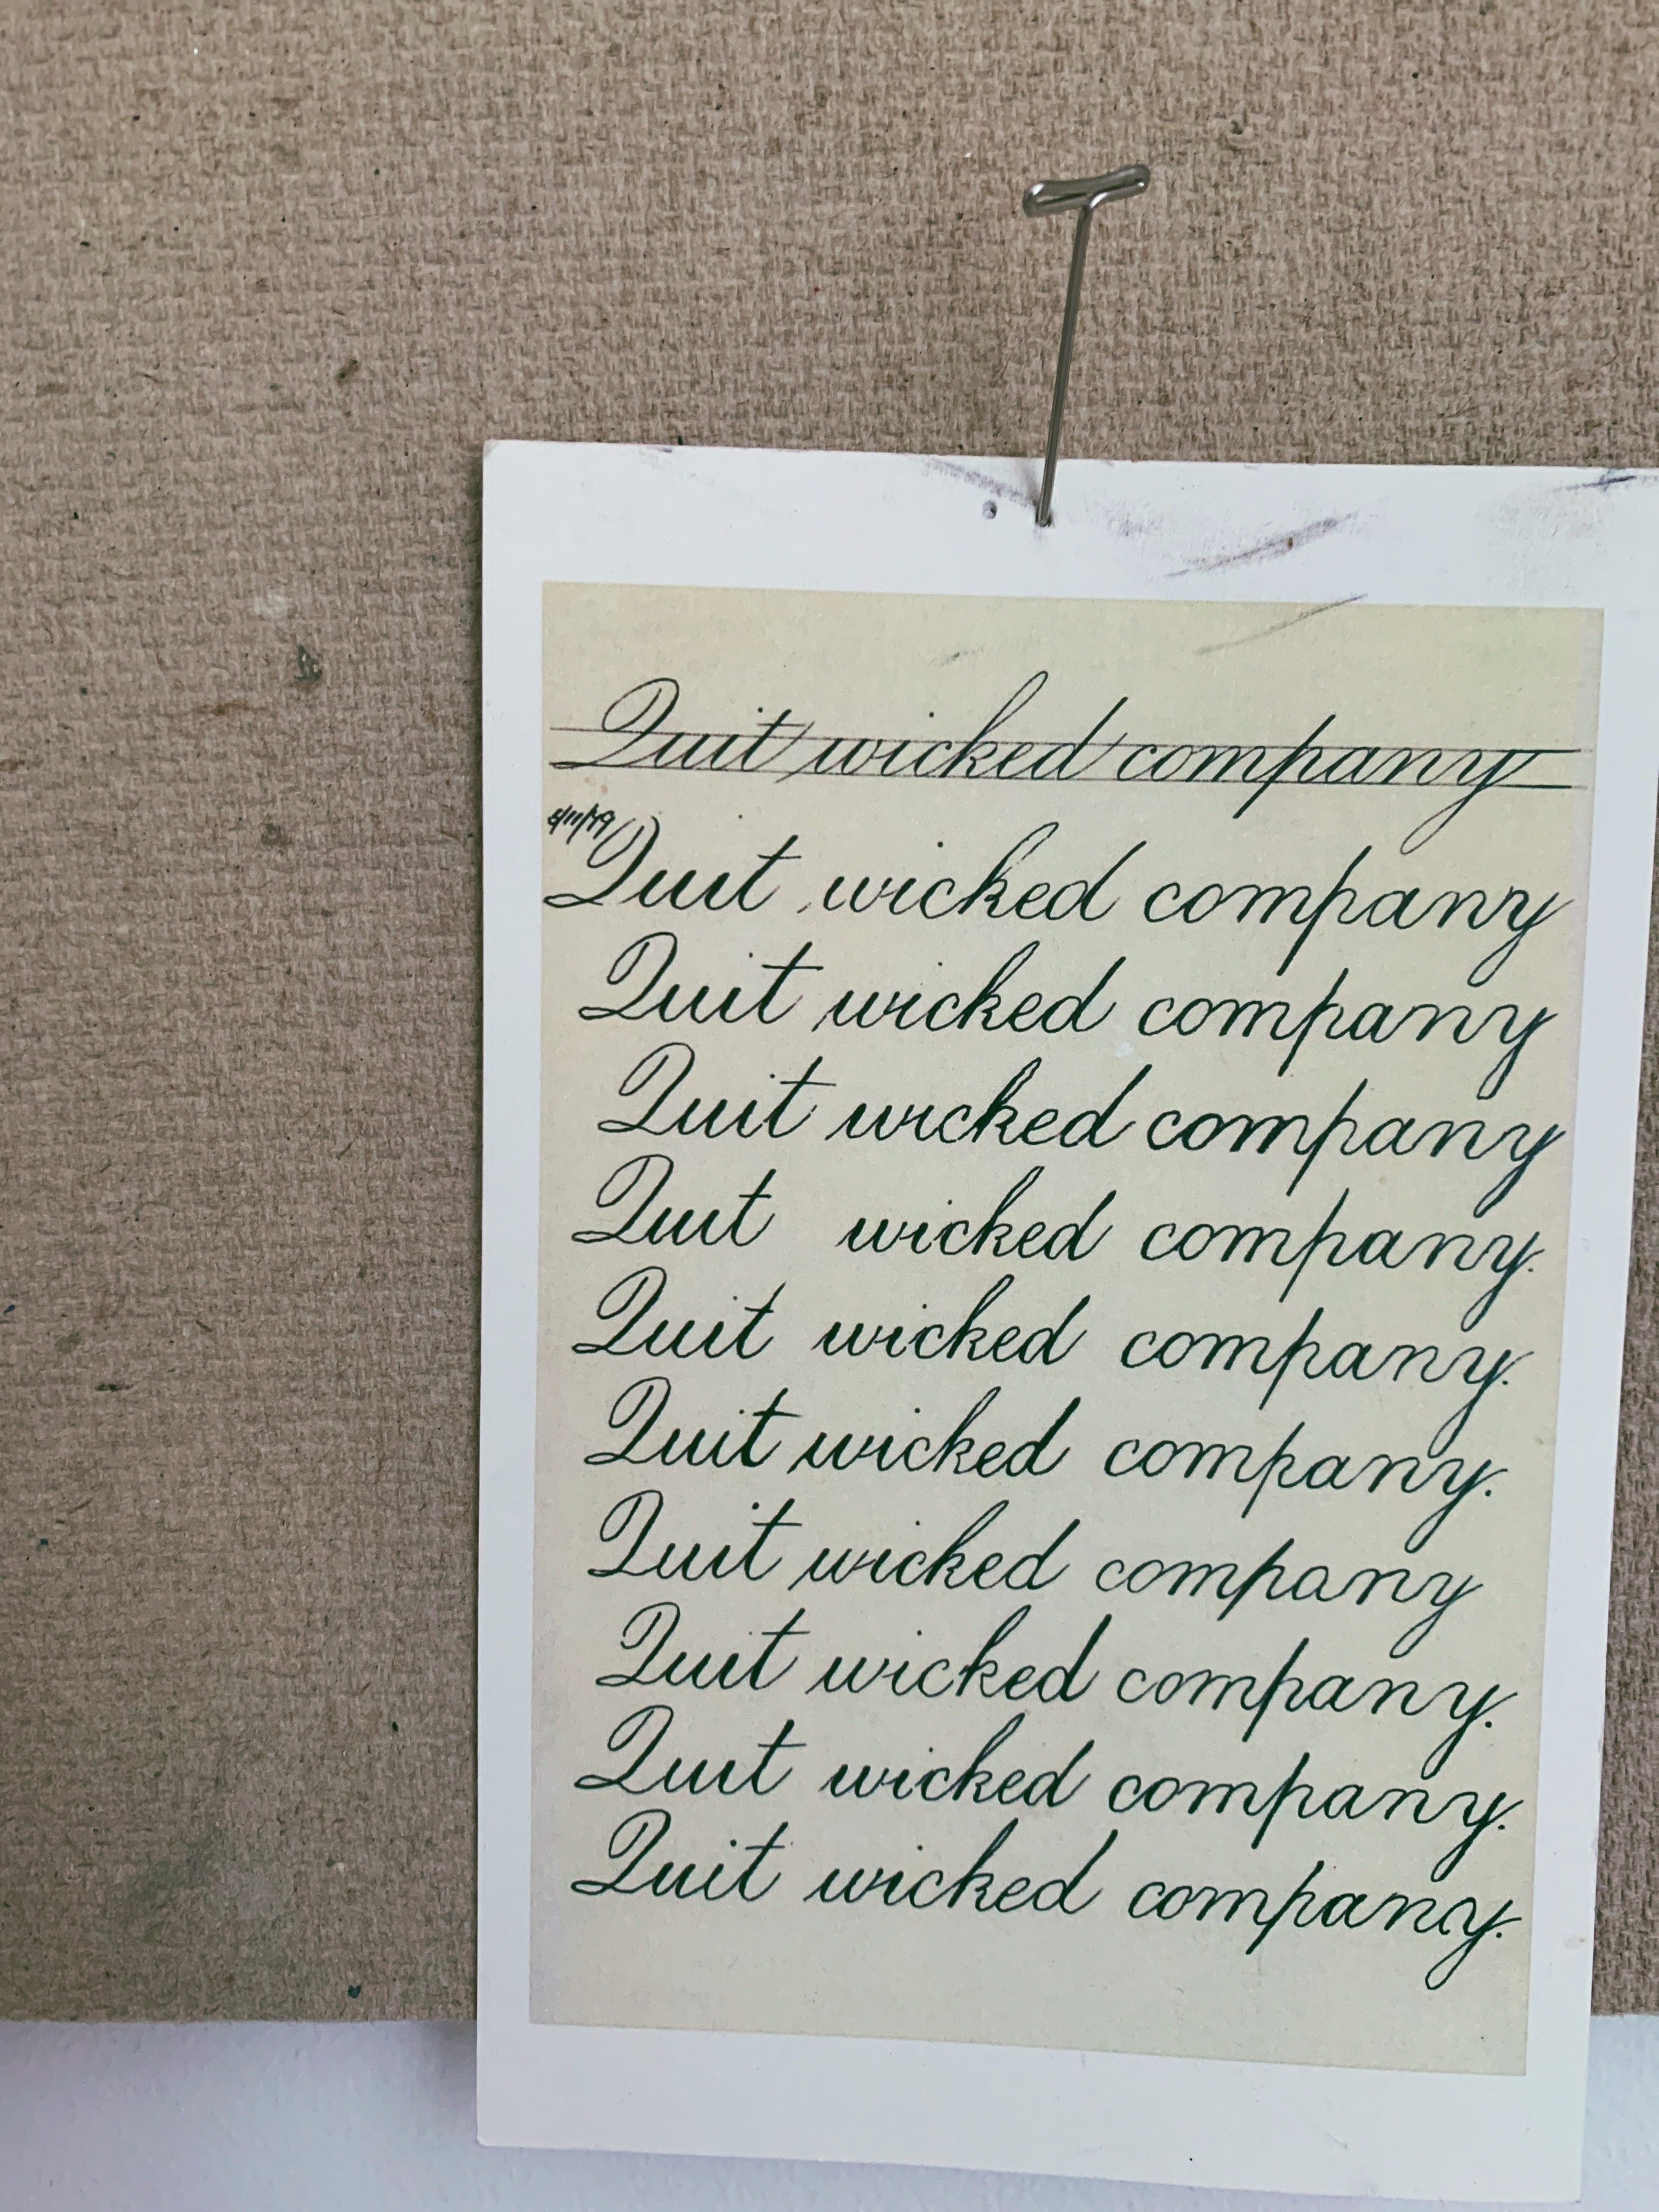 Quit wicked company
Quit wicked company
Quit wicked company
Quit wicked company
Quit wicked company.
Quit wicked company.
Quit wicked company.
Quit wicked company
Quit wicked company.
Quit wicked company.
Quit wicked company.